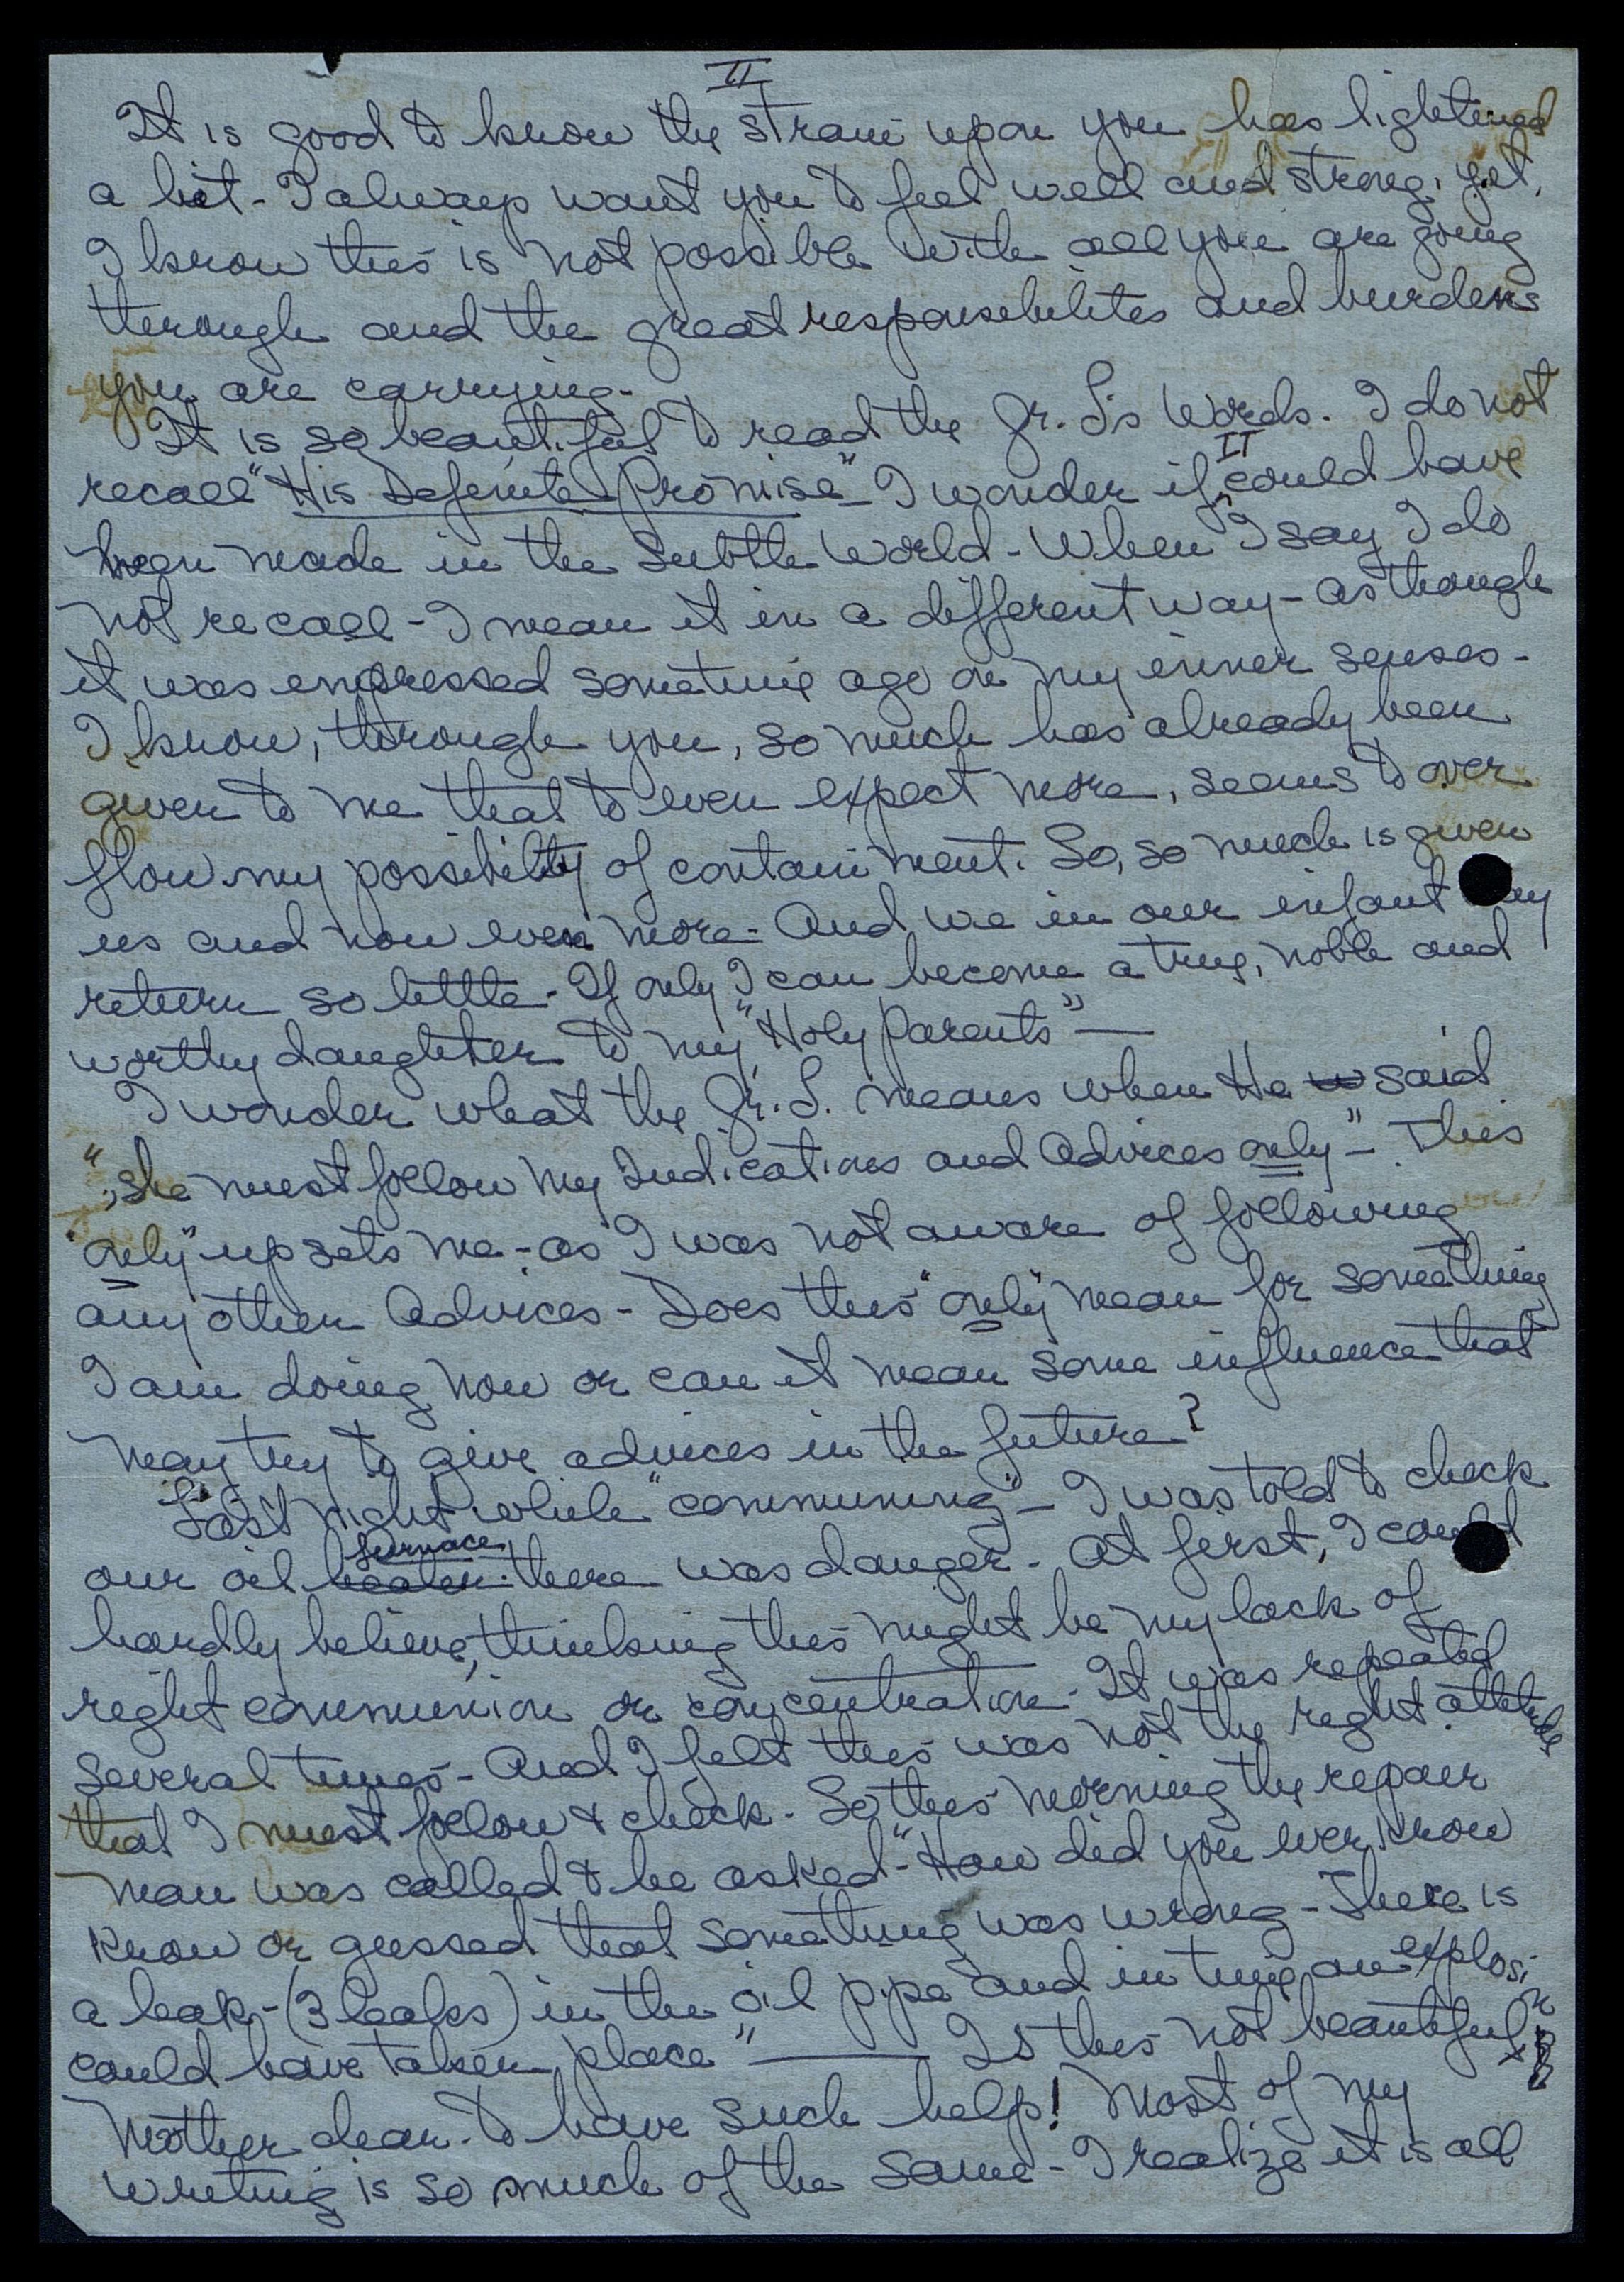 II
It is good to know the strain upon you has lightened
a bit - I always want you to feel well and strong, yet,
I know this is not possible with all you are going
through and the great responsibilites and burdens
you are carrying -
It is so beautiful to read the Gr. L's Words. I do not
recall "His Definite Promise" - I wonder if IT could have
been made in the Subtle World - When I say I do
not recall - I mean it in a different way - as though
it was impressed sometime ago on my inner senses -
I know, through you, so much has already been
given to me that to even expect more, seems to over
flow my possibility of containment. So, so much is given
us and now even more - And we in our infant way
return so little - If only I can become a true, noble and
worthy daughter to my "Holy Parents" —
I wonder what the Gr. L. means when He said
"she must follow my Indications and Advices only" - This
"only" upsets me - as I was not aware of following
any other Advices - Does this "only" mean for something
I am doing now or can it mean some influence that
may try to give advices in the future?
Last night while "communing" - I was told to check
our oil heater furnace there was danger - At first, I could
hardly believe, thinking this might be my lack of
right communion or concentration - It was repeated
several times - And I felt this was not the right attitude
that I must follow & check - So this morning the repair
man was called & he asked - "How did you ever know
know or guessed that something was wrong - There is
a leak - (3 leaks) in the oil pipe and in time an explosion
could have taken place" — Is this not beautiful
Mother dear - to have such help! Most of my
writing is so much of the same - I realize it is all